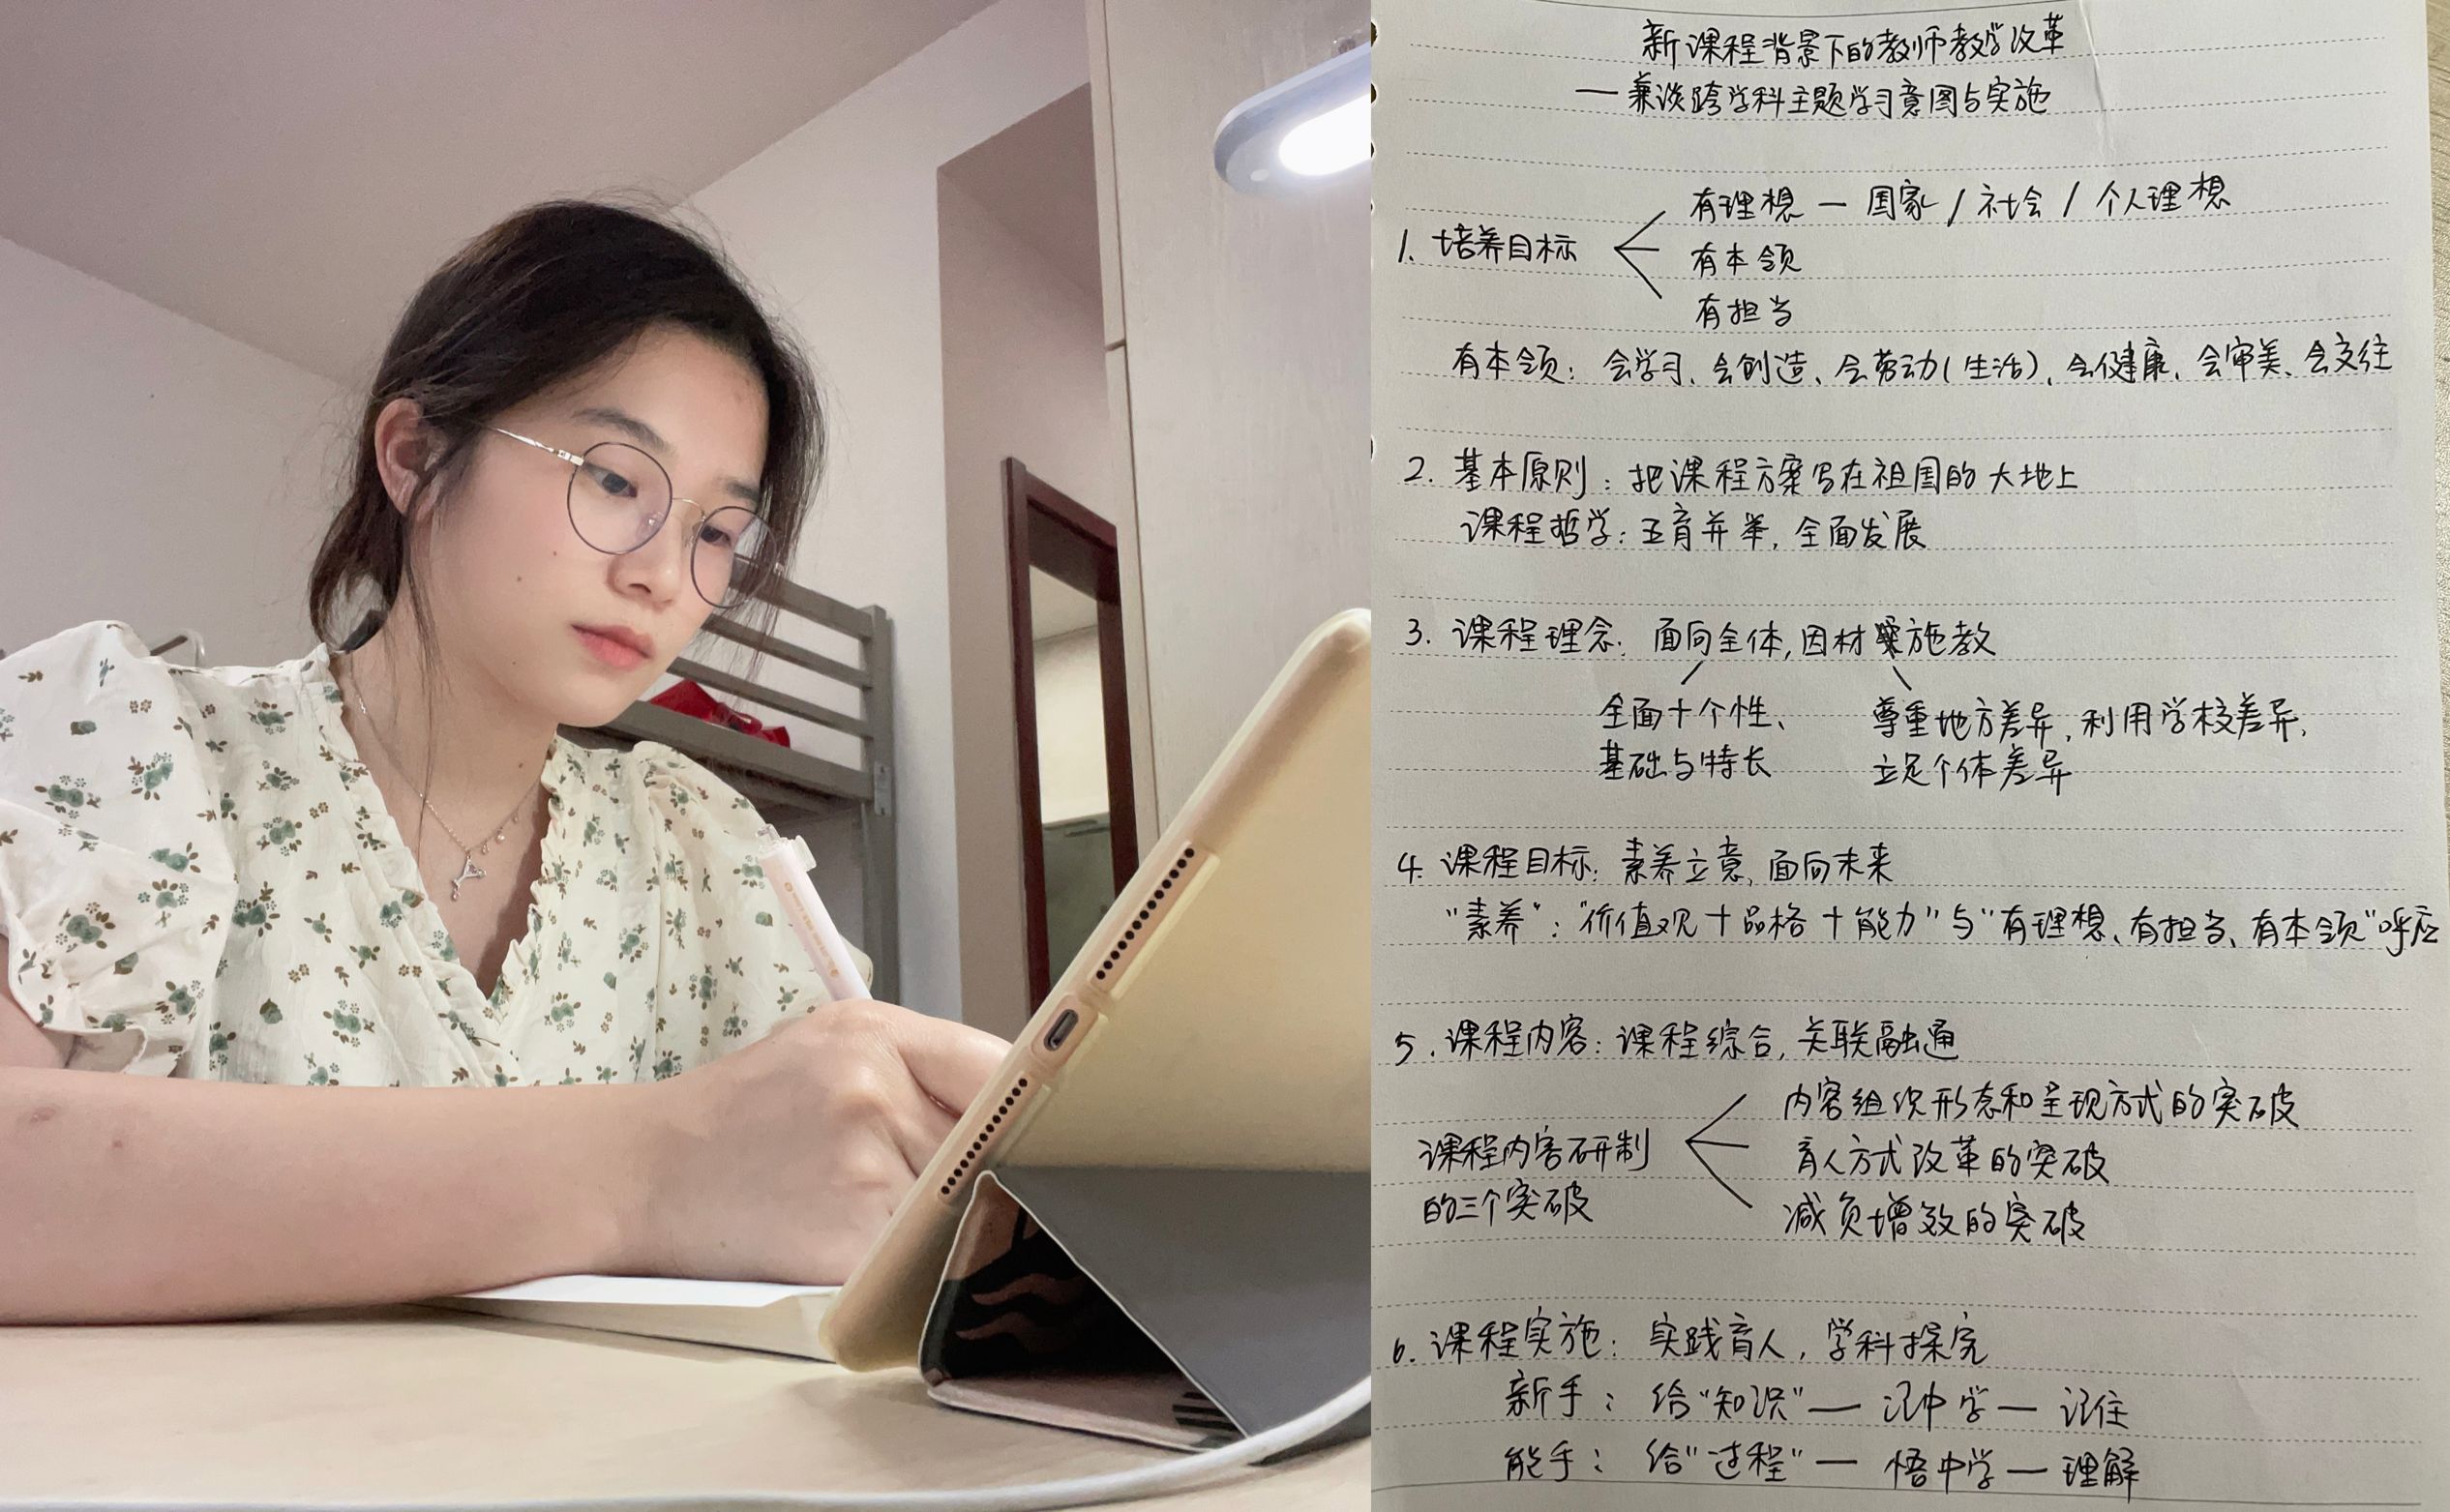 新课程背景下的教师教学改革
— 兼谈跨学科主题学习意图与实施
有理想 — 国家 / 社会 / 个人理想
1. 培养目标
有本领
有担当
有本领：会学习、会创造、会劳动(生活)、会健康、会审美、会交往
2. 基本原则：把课程方案写在祖国的大地上
课程哲学：五育并举，全面发展
3. 课程理念：面向全体，因材施教
全面+个性、 尊重地方差异，利用学校差异，
基础与特长 立足个体差异
4. 课程目标：素养立意，面向未来
“素养”：“价值观+品格+能力”与“有理想、有担当、有本领”呼应
5. 课程内容：课程综合，关联融通
内容组织形态和呈现方式的突破
课程内容研制 育人方式改革的突破
的三个突破 减负增效的突破
6. 课程实施：实践育人，学科探究
新手：给“知识”— 记中学 — 记住
能手：给“过程”— 悟中学 — 理解